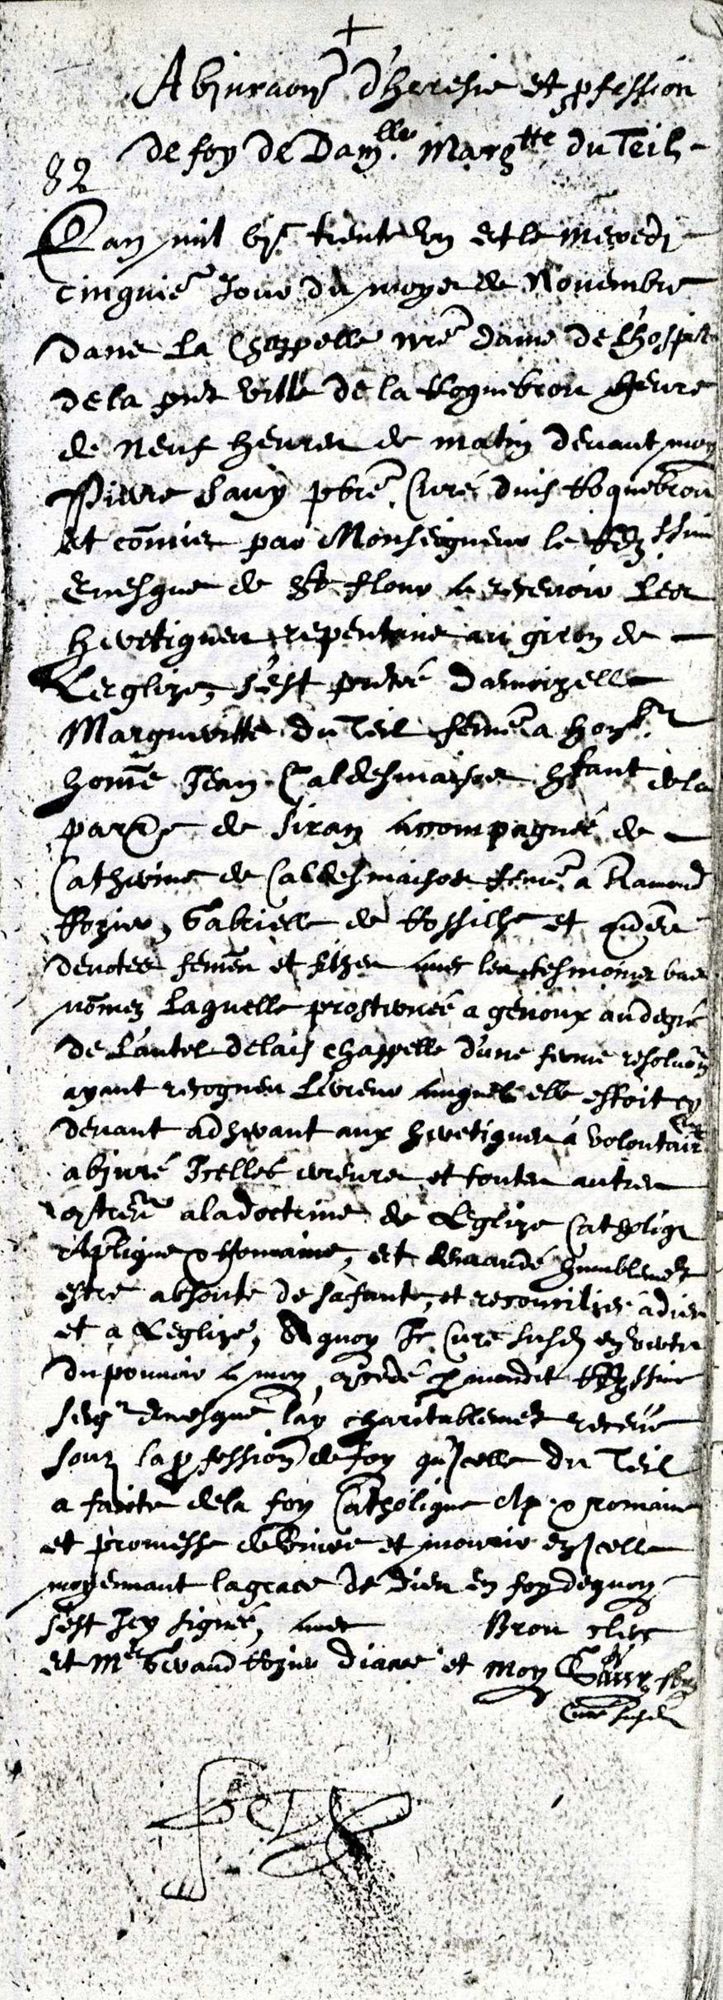 Abjuraon d'heresie et pfession
de foy de Damlle Margtte du Teil
82
L'an mil vjc trente un et le mercredj
cinquie Jour du moys de Novembre
dans La Chappelle nre dame de L'hospit
de la pnt ville de la Roquebrou heure
de neuf heures de matin devant moy
Pierre Sauy pbre Curé dud Roquebrou
et comis par Monseigneur le
Evesque de St flour a recevoir les
heretiques repentans au giron de
L'eglize, s'est pnté damoizelle
Margueritte du Teil feme a hon
home Jean Caldesmaisos hfant de la
par de Siran accompagnée de
Catherine de Caldesmaisos feme a Ramond
Rozier, Gabrielle de Rossilhe et
devotes femes et filhes avec les tesmoins bas
nomez Laquelle prosternée a genoux au degré
de L'autel de lad chappelle d'une ferme resoluon
ayant recogneu L'erreur auquel elle estoit cy
devant adherant aux heretiques a volontair
abjuré Jcelles erreurs et toutes autres
a la doctrine de L'Eglize Catholiq
Aplique & Romaine, et demandé humblemet
estre absoute de sa faute, et reconcilier a dieu
et a L'eglize, A quoy Je Curé susd en vertu
du pouvoir a moy cedé p mondit
seigr Evesque l'ay charitablemet receue
souz la pfession de foy qu'Jcelle du Teil
a faicte de la foy Catholique Ap & romaine
et promesse de vivre et mourir en Jcelle
moyennant la grace de Dieu en foy de quoy
s'est Jcy signée, avec Brou clerc
et Me Geraud Rozier Diacre et moy Sauy pbre
Curé susd